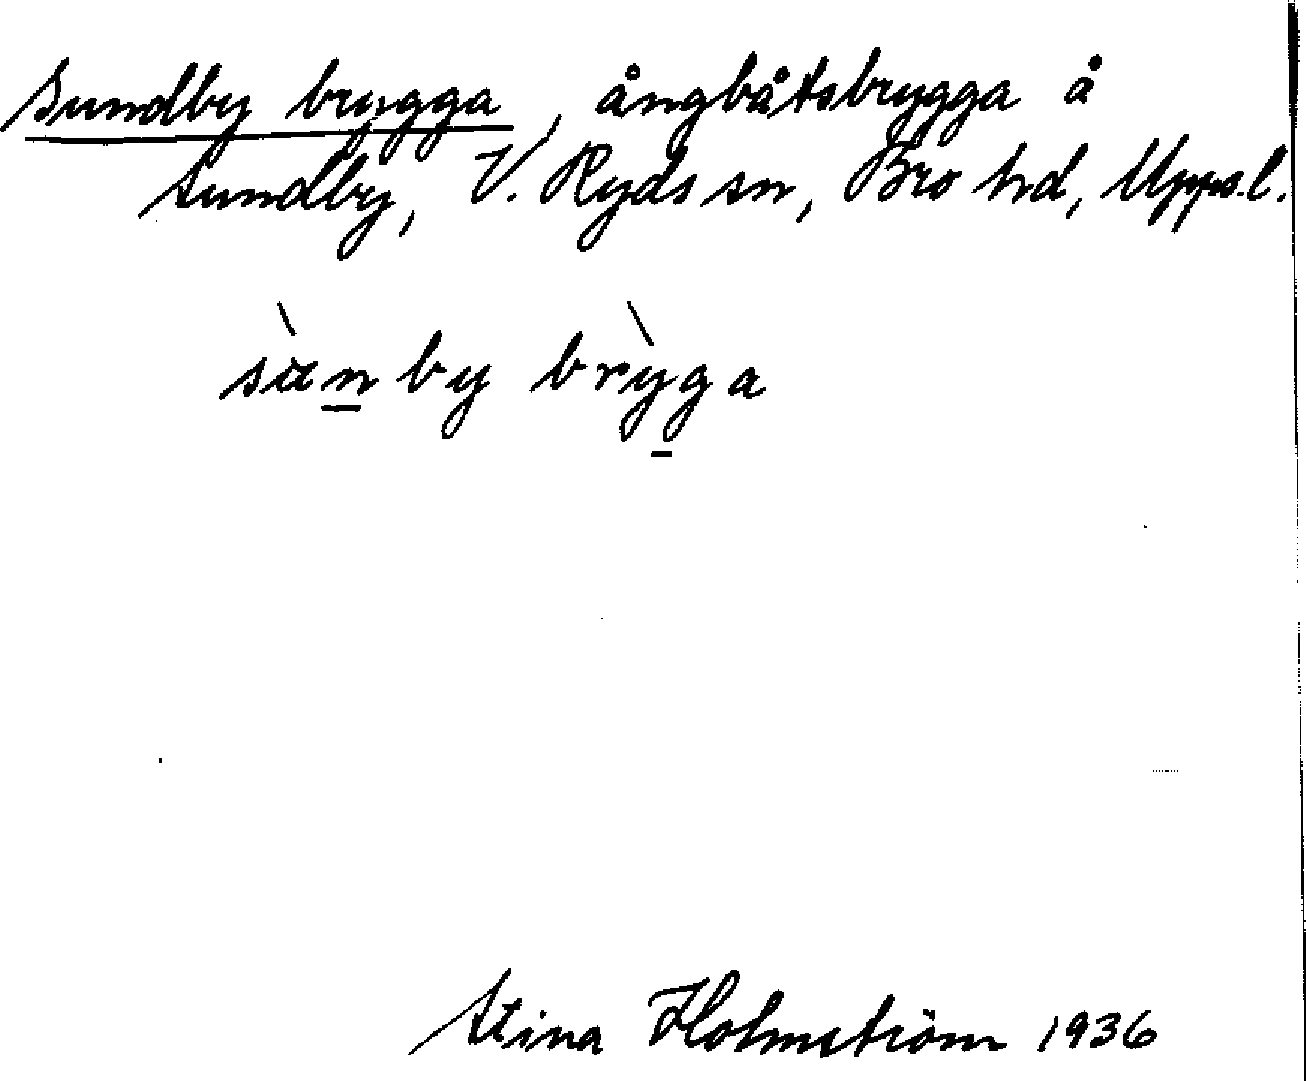 Sundby brygga, ångbåtsbrygga å
Sundby, V. Ryds sn, Bro hd, Uppl.
by brỳga
Stina Holmström 1936